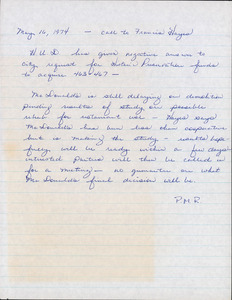 May 16, 1974 — call to Francis Hayes
H.U.D. has given negative answer to
city request for Historic Preservation funds
to acquire 463-467 —
McDonalds is still delaying on demolition
pending results of study on possible
rehab for restaurant use — Hayes says
McDonalds has been less than cooperative
but is making the study — results hope-
fully will be ready within a few days —
interested parties will then be called in
for a meeting — no guarantee on what
McDonalds final decision will be.
P.M.R.